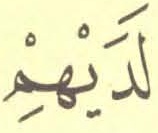 لَدَيْهِمْ